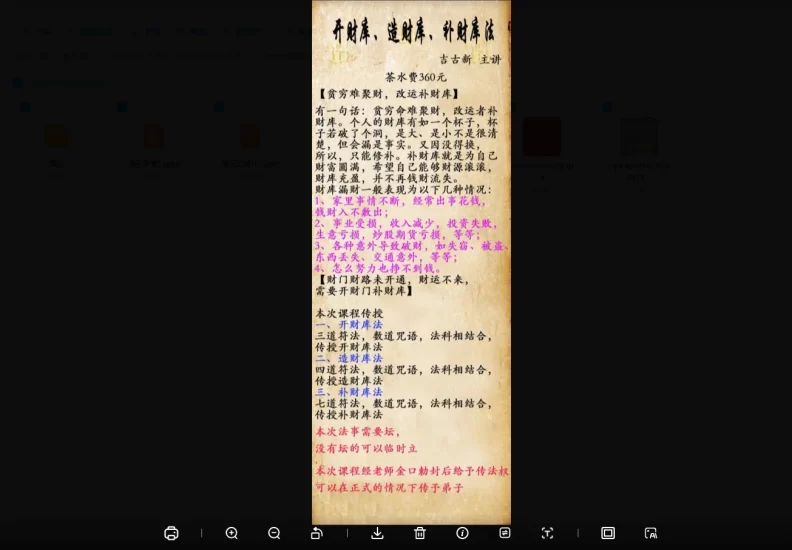 开财库、造财库、补财库法
吉古新 主讲
茶水费360元
【贫穷难聚财，改运补财库】
有一句话：贫穷命难聚财，改运者补
财库。个人的财库有如一个杯子，杯
子若破了个洞，是大、是小不是很清
楚，但会漏是事实。又因没得换，
所以，只能修补。补财库就是为自己
财富圆满，希望自己能够财源滚滚，
财库充盈，并不再钱财流失。
财库漏财一般表现为以下几种情况：
1、家里事情不断，经常出事花钱，
钱财入不敷出；
2、事业受损，收入减少，投资失败，
生意亏损，炒股期货亏损，等等；
3、各种意外导致破财，如失窃、被盗、
东西丢失、交通意外，等等；
4、怎么努力也挣不到钱。
【财门财路未开通，财运不来，
需要开财门补财库】
本次课程传授
一、开财库法
三道符法，数道咒语，法科相结合，
传授开财库法
二、造财库法
四道符法，数道咒语，法科相结合，
传授造财库法
三、补财库法
七道符法，数道咒语，法科相结合，
传授补财库法
本次法事需要坛，
没有坛的可以临时立
本次课程经老师金口勅封后给予传法权
可以在正式的情况下传予弟子